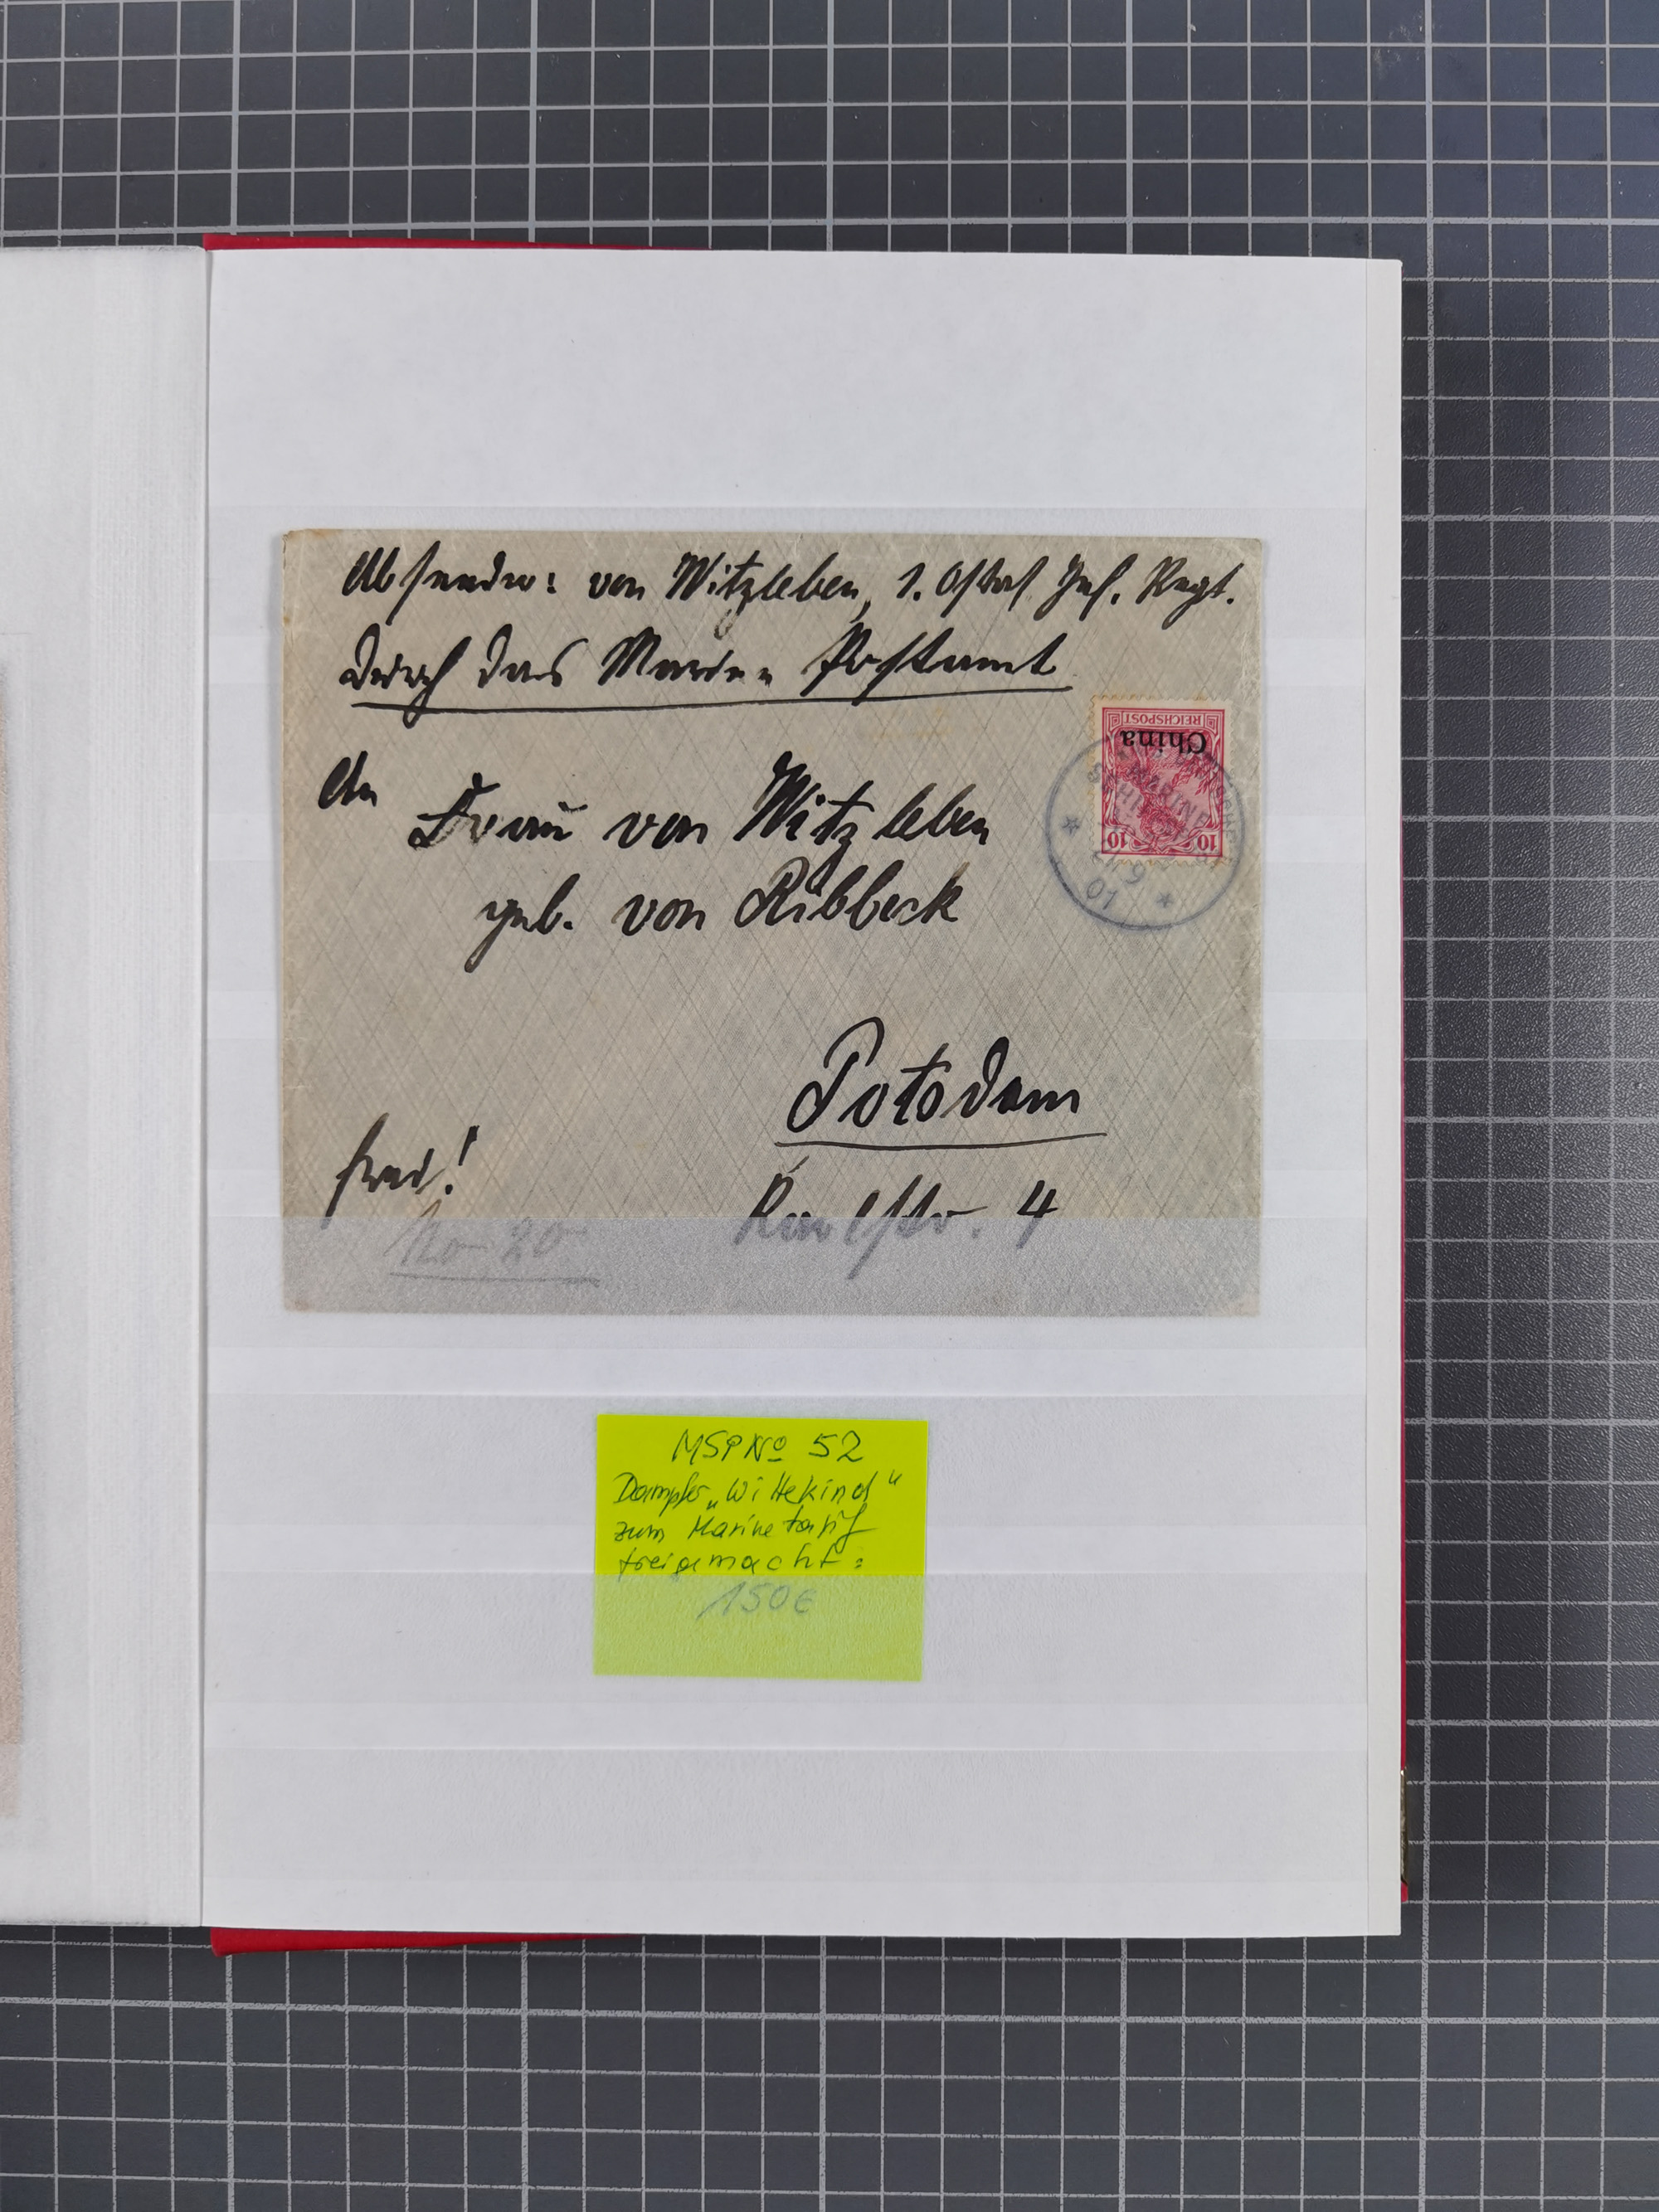 Absender: von Witzleben, 1. Ostas. Inf. Regt.
Durch das Marine Postamt
REICHSPOST
China
10 10
MARINE
9
01
An
Frau von Witzleben
geb. von Ribbeck
Potsdam
frei!
No 20
4
MSPNo 52
Dampfer „Wittekind“
zum Marinetarif
freigemacht:
150€